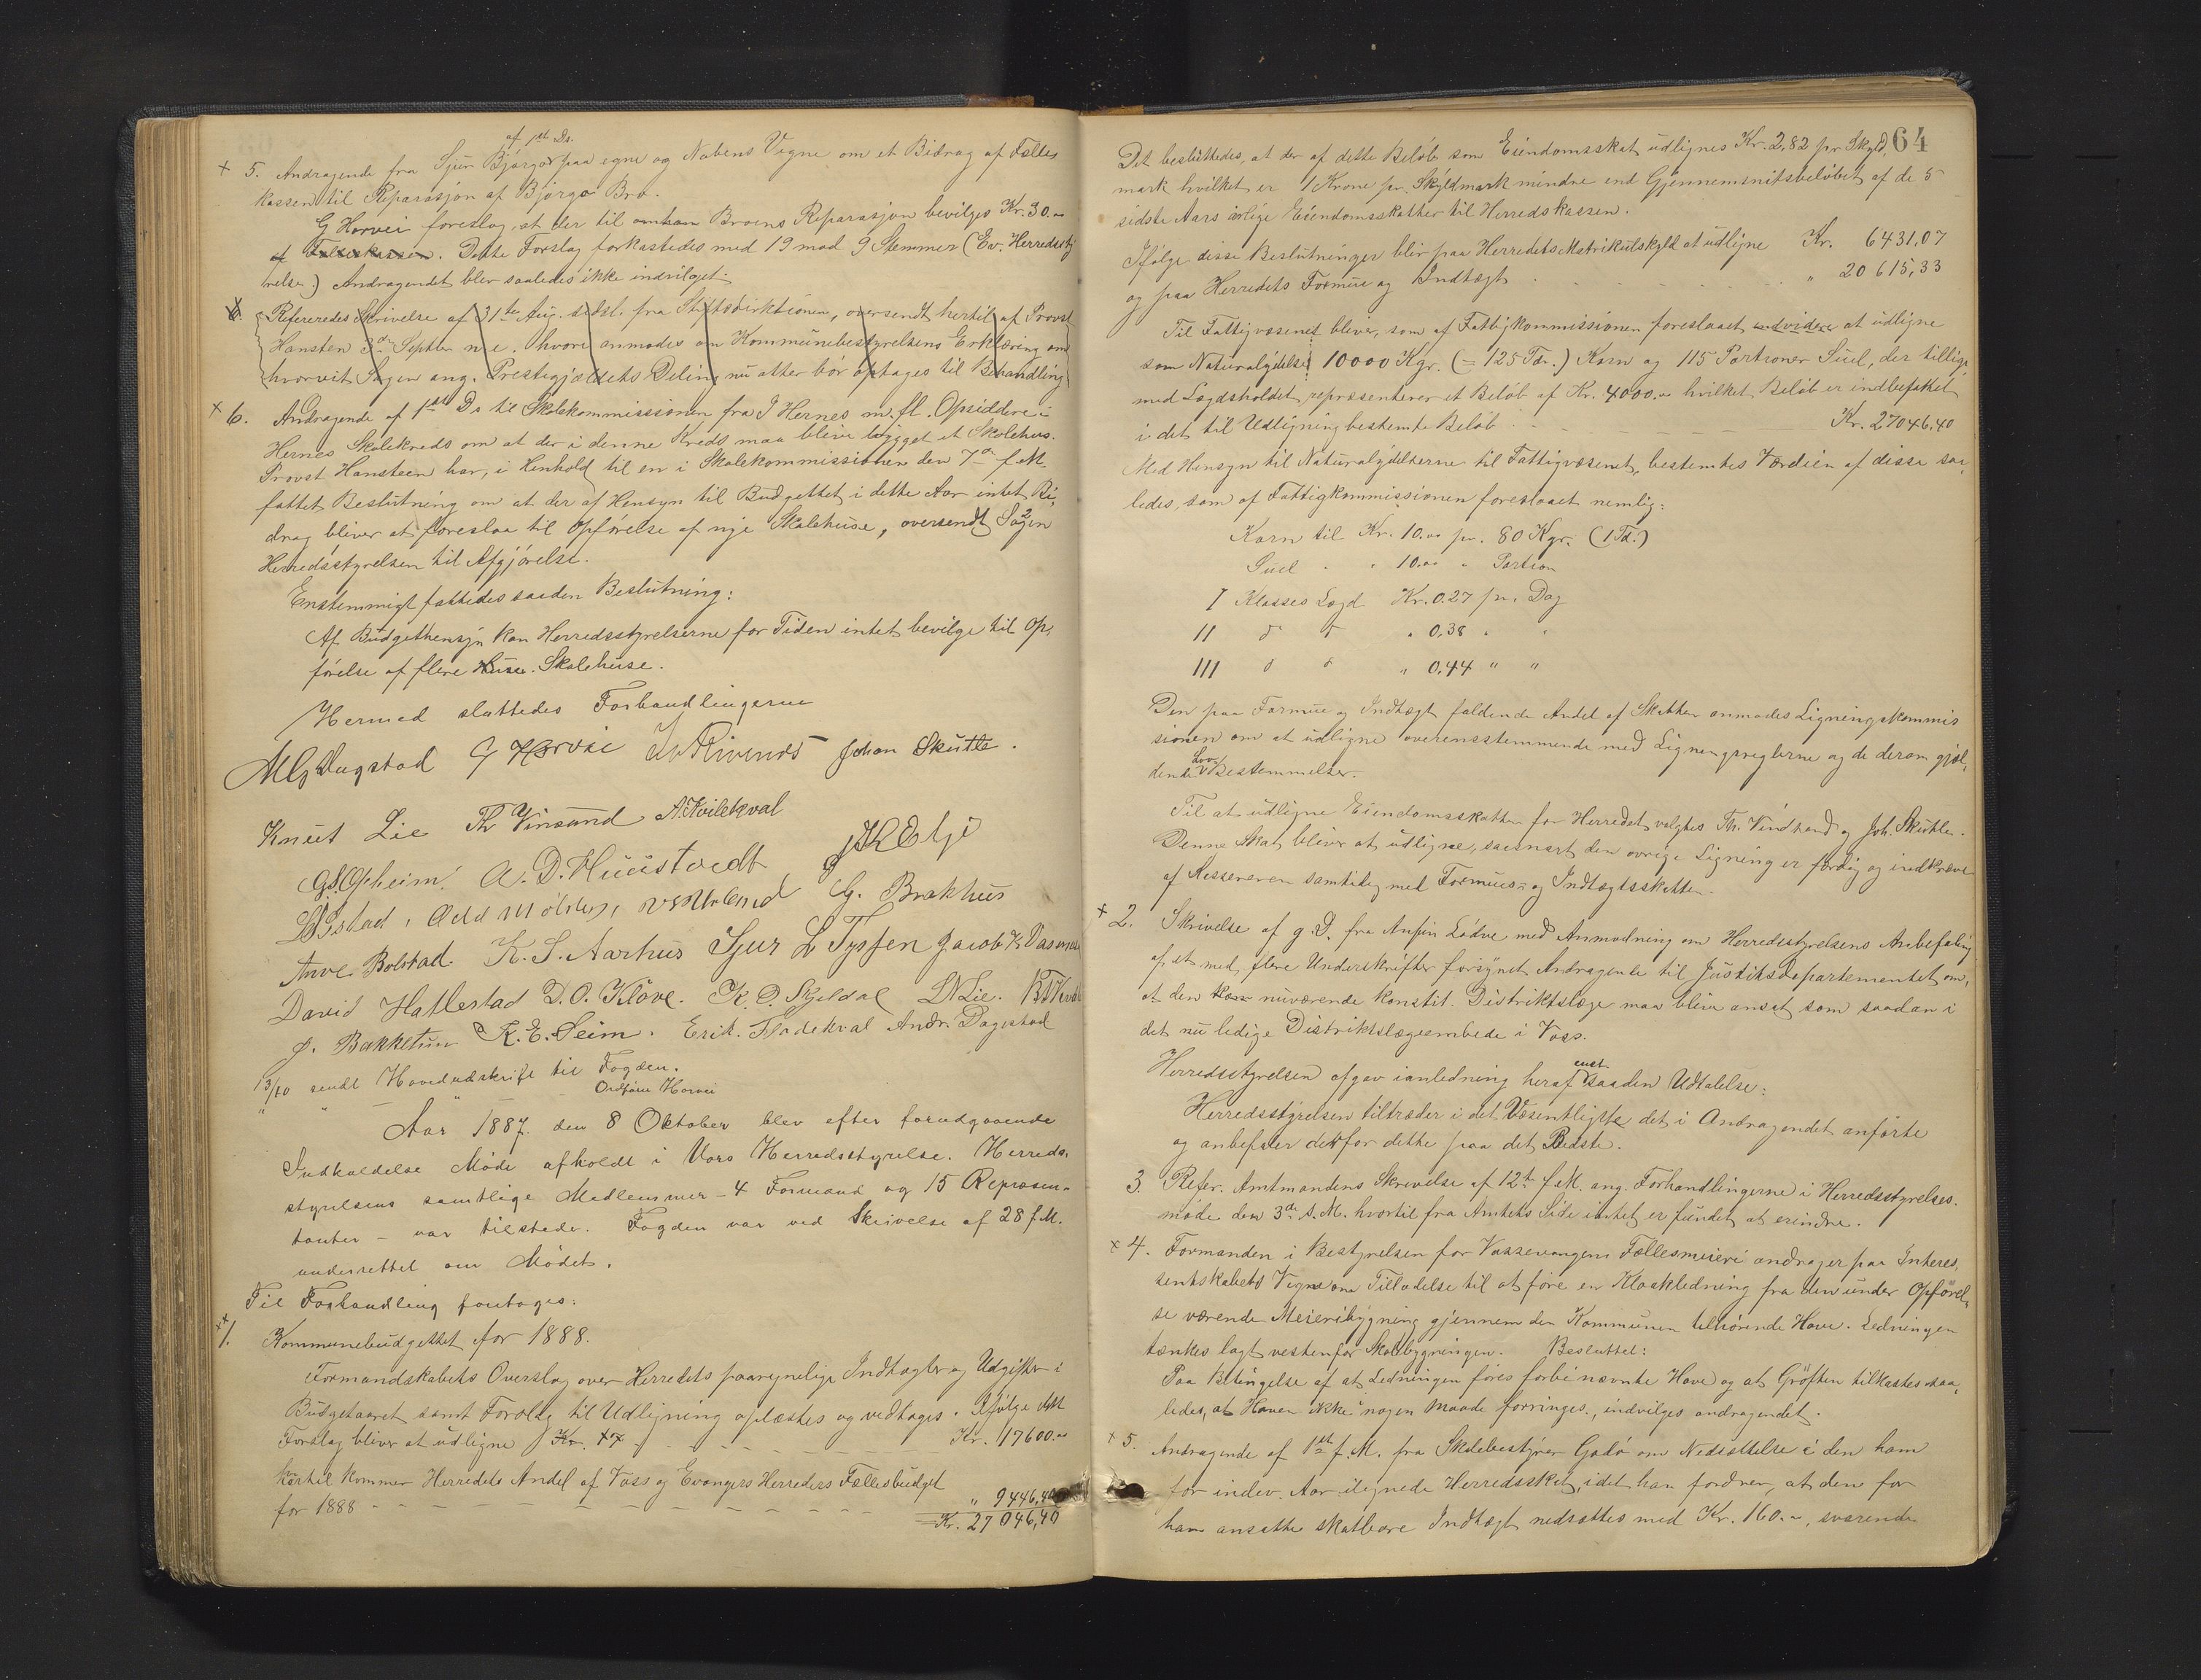 af 1ste Ds.
+ 5. Andragende fra Sjur Bjørgo paa egne og Nabens Vegne om et Bidrag af Fælles
kassen til Reparasjon af Bjørgo Bro.
G Horvei foreslog, at der til omhan Broens Reparasjon bevilges Kr. 30.00
af Fælleskassen. Dette Forslag forkastedes med 19 mod 9 Stemmer (Ev. Herredssty
relse.) Andragendet blev saaledes ikke indvilget.
6. Refereredes Skrivelse af 31te Aug. sidstl. fra Stiftsdirektionen, oversendt hertil af Provst
Hansten 3die Septbr n.e. hvori anmodes om Kommunebestyrelsens Erklæring om
hvorvit Sagen ang. Prestegjældets Deling nu atter bør optages til Behandling
+ 6. Andragende af 1ste Ds til Skolekommissionen fra I Hernes m. fl. Opsiddere i
Hernes Skolekreds om at der i denne Kreds maa blive bygget et Skolehus.
Provst Hansteen har, i Henhold til en i Skolekommissionen den 7de f.M.
fattet Beslutning om at der af Hensyn til Budgettet i dette Aar intet Bi,
drag bliver at foreslaa til Opførelse af nye Skolehuse, oversendt Sagen
Herredsstyrelsen til Afgjørelse.
Enstemmigt fattedes saaden Beslutning:
Af Budgethensyn kan Herredsstyrelserne for Tiden intet bevilge til Op,
førelse af flere Huse. Skolehuse.
Hermed sluttedes Forhandlingerne
G Horvei Johan Skutle.
Knut Lie Th Vinsand A. Kvilekval
G. Opheim. A. D. Huustvedt
Odd Mölster, G. Brakhus
Arve Bolstad. K. S. Aarhus Sjur L Tyssen Jacob
David Hatlestad D. O. Kløve. K. O. Skjeldal Lie.
J. Bakketun K. E. Seim. Erik. Fladekval Andr. Dagestad
13/10 sendt Hovedudskrift til Fogden.
Ordføre Horvei
Aar 1887. den 8 Oktober blev efter forudgaaende
Indkaldelse Møde afholdt i Vors Herredsstyrelse. Herreds,
styrelsens samtlige Medlemmer - 4 Formænd og 15 Repræsen-
tanter - var tilstede. Fogden var ved Skrivelse af 28 f.M.
underrettet om Mødet.
Til Forhandling foretoges:
++ 1. Kommunebudgettet for 1888.
Formandskabets Overslag over Herredets paaregnelige Indtægter og Udgifter i
Budgetaaret samt Forslag til Udligning oplæstes og vedtoges. Ifølge dett
Forslag bliver at udligne Kr. 17 Kr. 17600.00
hvortil kommer Herredets Andel af Voss og Evangers Herreders Fællesbudget
for 1888 " 9446,40
Kr. 27046,40
64
Det besluttedes, at der af dette Beløb som Eiendomsskat udlignes Kr. 2,82 pr Skyld,
mark hvilket er 1 Krone pr. Skyldmark mindre end Gjennemsnitsbeløbet af de 5
sidste Aars aarlige Eiendomsskatter til Herredskassen.
Ifølge disse Beslutninger blir paa Herredets Matrikulskyld at udligne Kr. 6431,07
og paa Herredets Formue og Indtægt " 20615,33
Til Fattigvæsenet bliver, som af Fattigkommissionen foreslaaet at udligne
som Naturalydelse 10000 Kgr. (= 125 Tdr.) Korn og 115 Portioner Suel, der tillige
med Lægdsholdet repræsenterer et Beløb af Kr. 4000.00 hvilket Beløb er indbefattet
i det til Udligning bestemte Beløb Kr. 27046,40
Med Hensyn til Naturalydelserne til Fattigvæsenet, bestemtes Værdien af disse saa,
ledes, som af Fattigkommissionen foreslaaet nemlig:
Korn til Kr. 10.00 pr. 80 Kgr. (1 Td.)
Suel " " 10.00 " Portion
I Klasses Lægd Kr. 0.27 pr. Dag
II do do " 0.38 " "
III do do " 0.44 " "
Den paa Formue og Indtægt faldende Andel af Skatten anmodes Ligningskommis
sionen om at udligne overensstemmende med Ligningsreglerne og de derom gjæl,
dende Lov Bestemmelser.
Til at udligne Eiendomsskatten for Herredet valgtes Th. Vindsand og Joh. Skutle.
Denne Skat bliver at udligne, saasnart den øvrige Ligning er færdig og indkræve
af Kassereren samtidig med Formues- og Indtægtsskatten.
+ 2. Skrivelse af g. D. fra Anfin Lødve med Anmodning om Herredsstyrelsens Anbefaling
af et med flere Underskrifter forsynet Andragende til Justitsdepartementet om,
at den nuværende konstit. Distriktslæge maa blive ansat som saadan i
det nu ledige Distriktslægeembede i Voss.
Herredsstyrelsen afgav ianledning heraf enst saaden Udtalelse:
Herredsstyrelsen tiltræder i det Væsentligste det i Andragendet anførte
og anbefaler derfor dette paa det Bedste.
3. Refer. Amtmandens Skrivelse af 12te f.M. ang. Forhandlingerne i Herredsstyrelses.
møde den 3die s.M. hvortil fra Amtets Side intet er fundet at erindre.
+ 4. Formanden i Bestyrelsen for Vossevangens Fællesmeieri andrager paa Interes,
sentskabets Vegne om Tilladelse til at føre en Kloakledning fra den under Opførel,
se værende Meieribygning gjennem den Kommunen tilhørende Have. Ledningen
tænkes lagt vestenfor Skolebygningen. Besluttet:
Paa Betingelse af at Ledningen føres forbi nævnte Have og at Grøften tilkastes saa,
ledes, at Haven ikke i nogen Maade forringes, indvilges andragendet.
+ 5. Andragende af 1ste f.M. fra Skolebestyrer Gadø om Nedsættelse i den ham
for indev. Aar ilignede Herredsskat, idet han fordrer, at den for
ham ansatte skatbare Indtægt nedsættes med Kr. 160.00, svarende